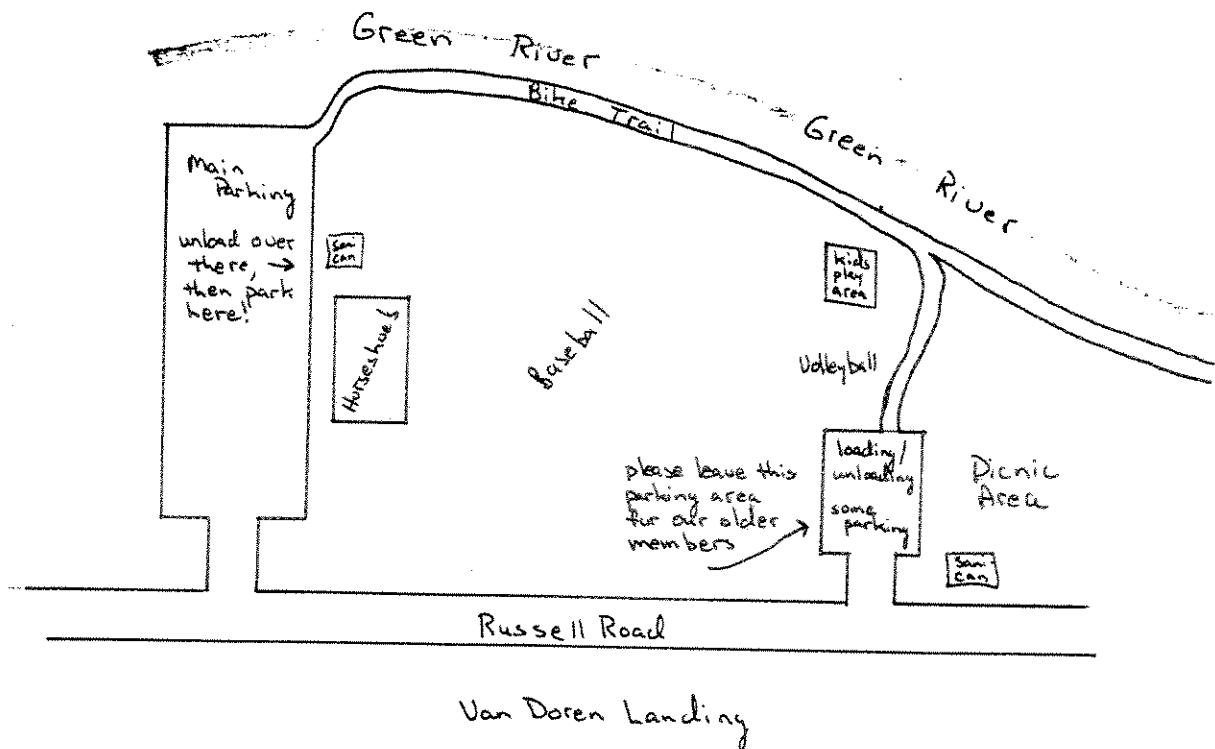 Green River
Bike Trail
Green River
Main
Parking
unload over
there, →
then park
here!
sani
can
Horseshoes
Baseball
kids
play
area
Volleyball
loading/
unloading
some
parking
please leave this
parking area
for our older
members
Picnic
Area
sani
can
Russell Road
Van Doren Landing